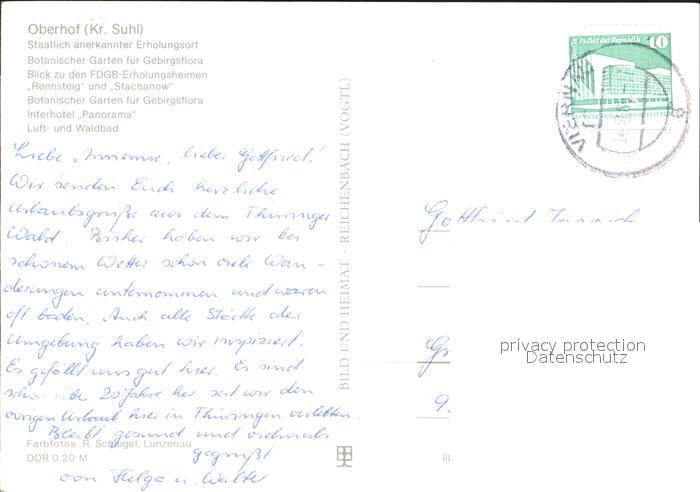 Oberhof (Kr. Suhl)
Staatlich anerkannter Erholungsort
Botanischer Garten für Gebirgsflora
Blick zu den FDGB-Erholungsheimen
„Rennsteig" und „Stachanow"
Botanischer Garten für Gebirgsflora
Interhotel „Panorama"
Luft- und Waldbad
Liebe Annemie, lieber Gottfried!
Wir senden Euch herzliche
Urlaubsgrüße aus dem Thüringer
Wald. Bisher haben wir bei
schönem Wetter schon viele Wan-
derungen unternommen und waren
oft baden. Auch alle Städte der
Umgebung haben wir inspiziert.
Es gefällt uns gut hier. Es sind
schon über 20 Jahre her, seit wir den
vorigen Urlaub hier in Thüringen verlebten.
Bleibt gesund und vielmals
gegrüßt
von Helga u. Walter
Farbfotos R. Schlegel, Lunzenau
DDR 0,20 M
BILD UND HEIMAT · REICHENBACH (VOGTL)
Berlin, Palast der Republik
10
Gottfried
Gr
9.
privacy protection
Datenschutz